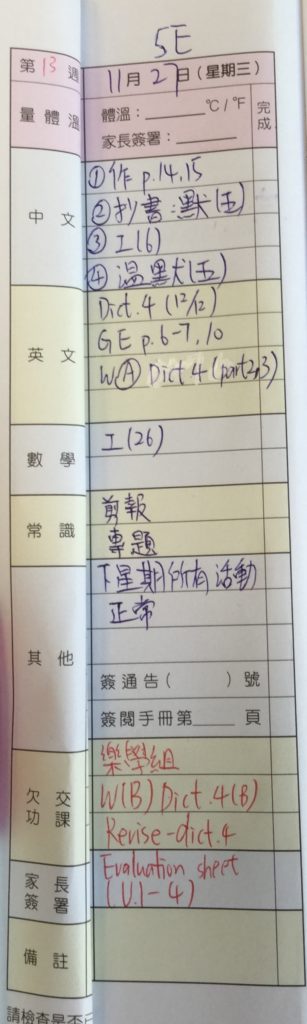 5E
第 13 週
11月27日(星期三)
量體溫
體溫：______°C/°F
家長簽署：______
完成
中文
①作 p.14,15
②抄書:默(五)
③工(6)
④溫默(五)
英文
Dict.4 (12/12)
GE p.6-7,10
W(A) Dict 4 (part2,3)
數學
工(26)
常識
剪報
專題
其他
下星期所有活動
正常
簽通告(　　)號
簽閱手冊第____頁
欠交功課
樂學組
W(B) Dict.4(B)
Revise-dict.4
家長簽署
Evaluation sheet
(U.1-4)
備註
請檢查是否已